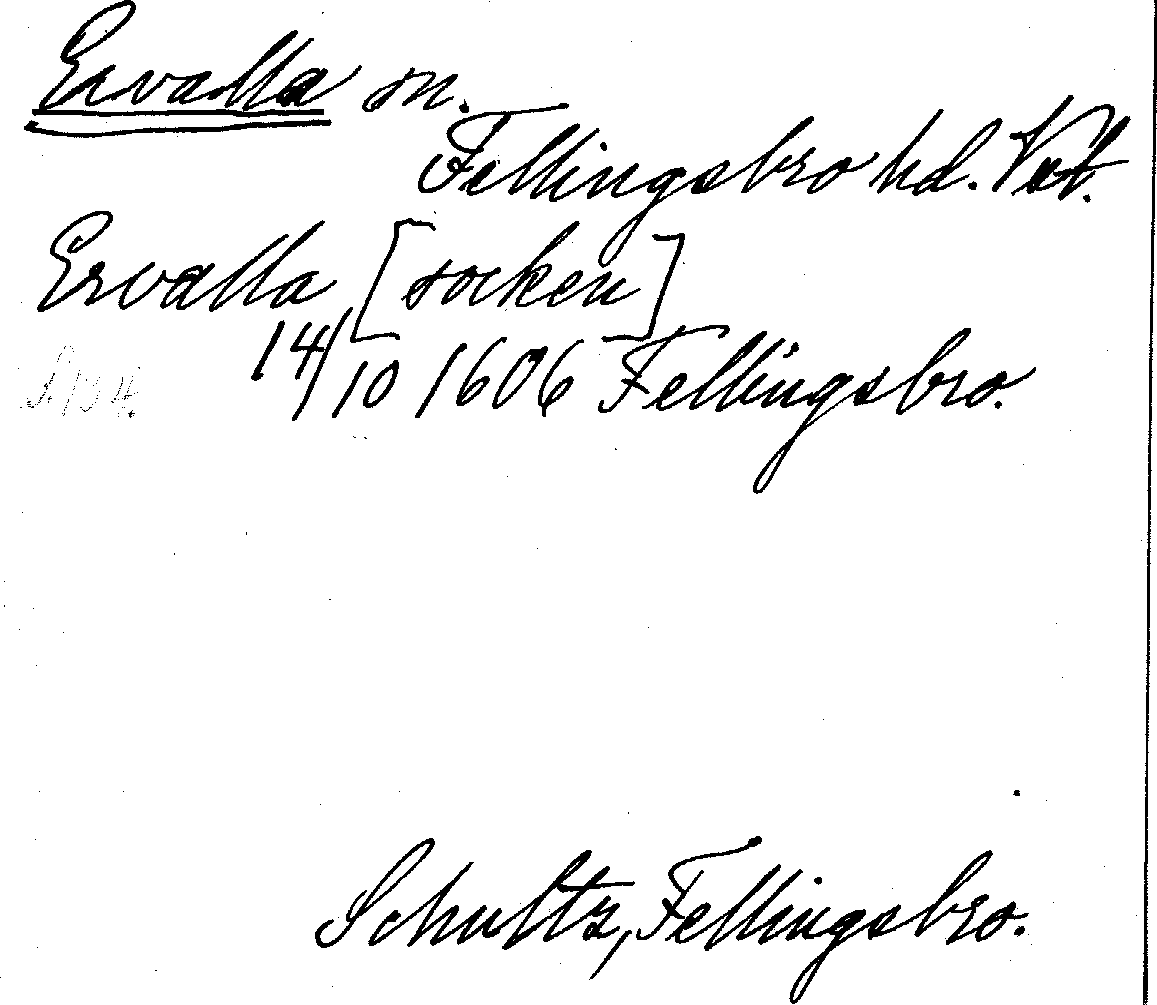 Ervalla sn.
Fellingsbro hd. Vstm.
Ervalla [socken]
14/10 1606 Fellingsbro.
S. 104.
Schultz, Fellingsbro.